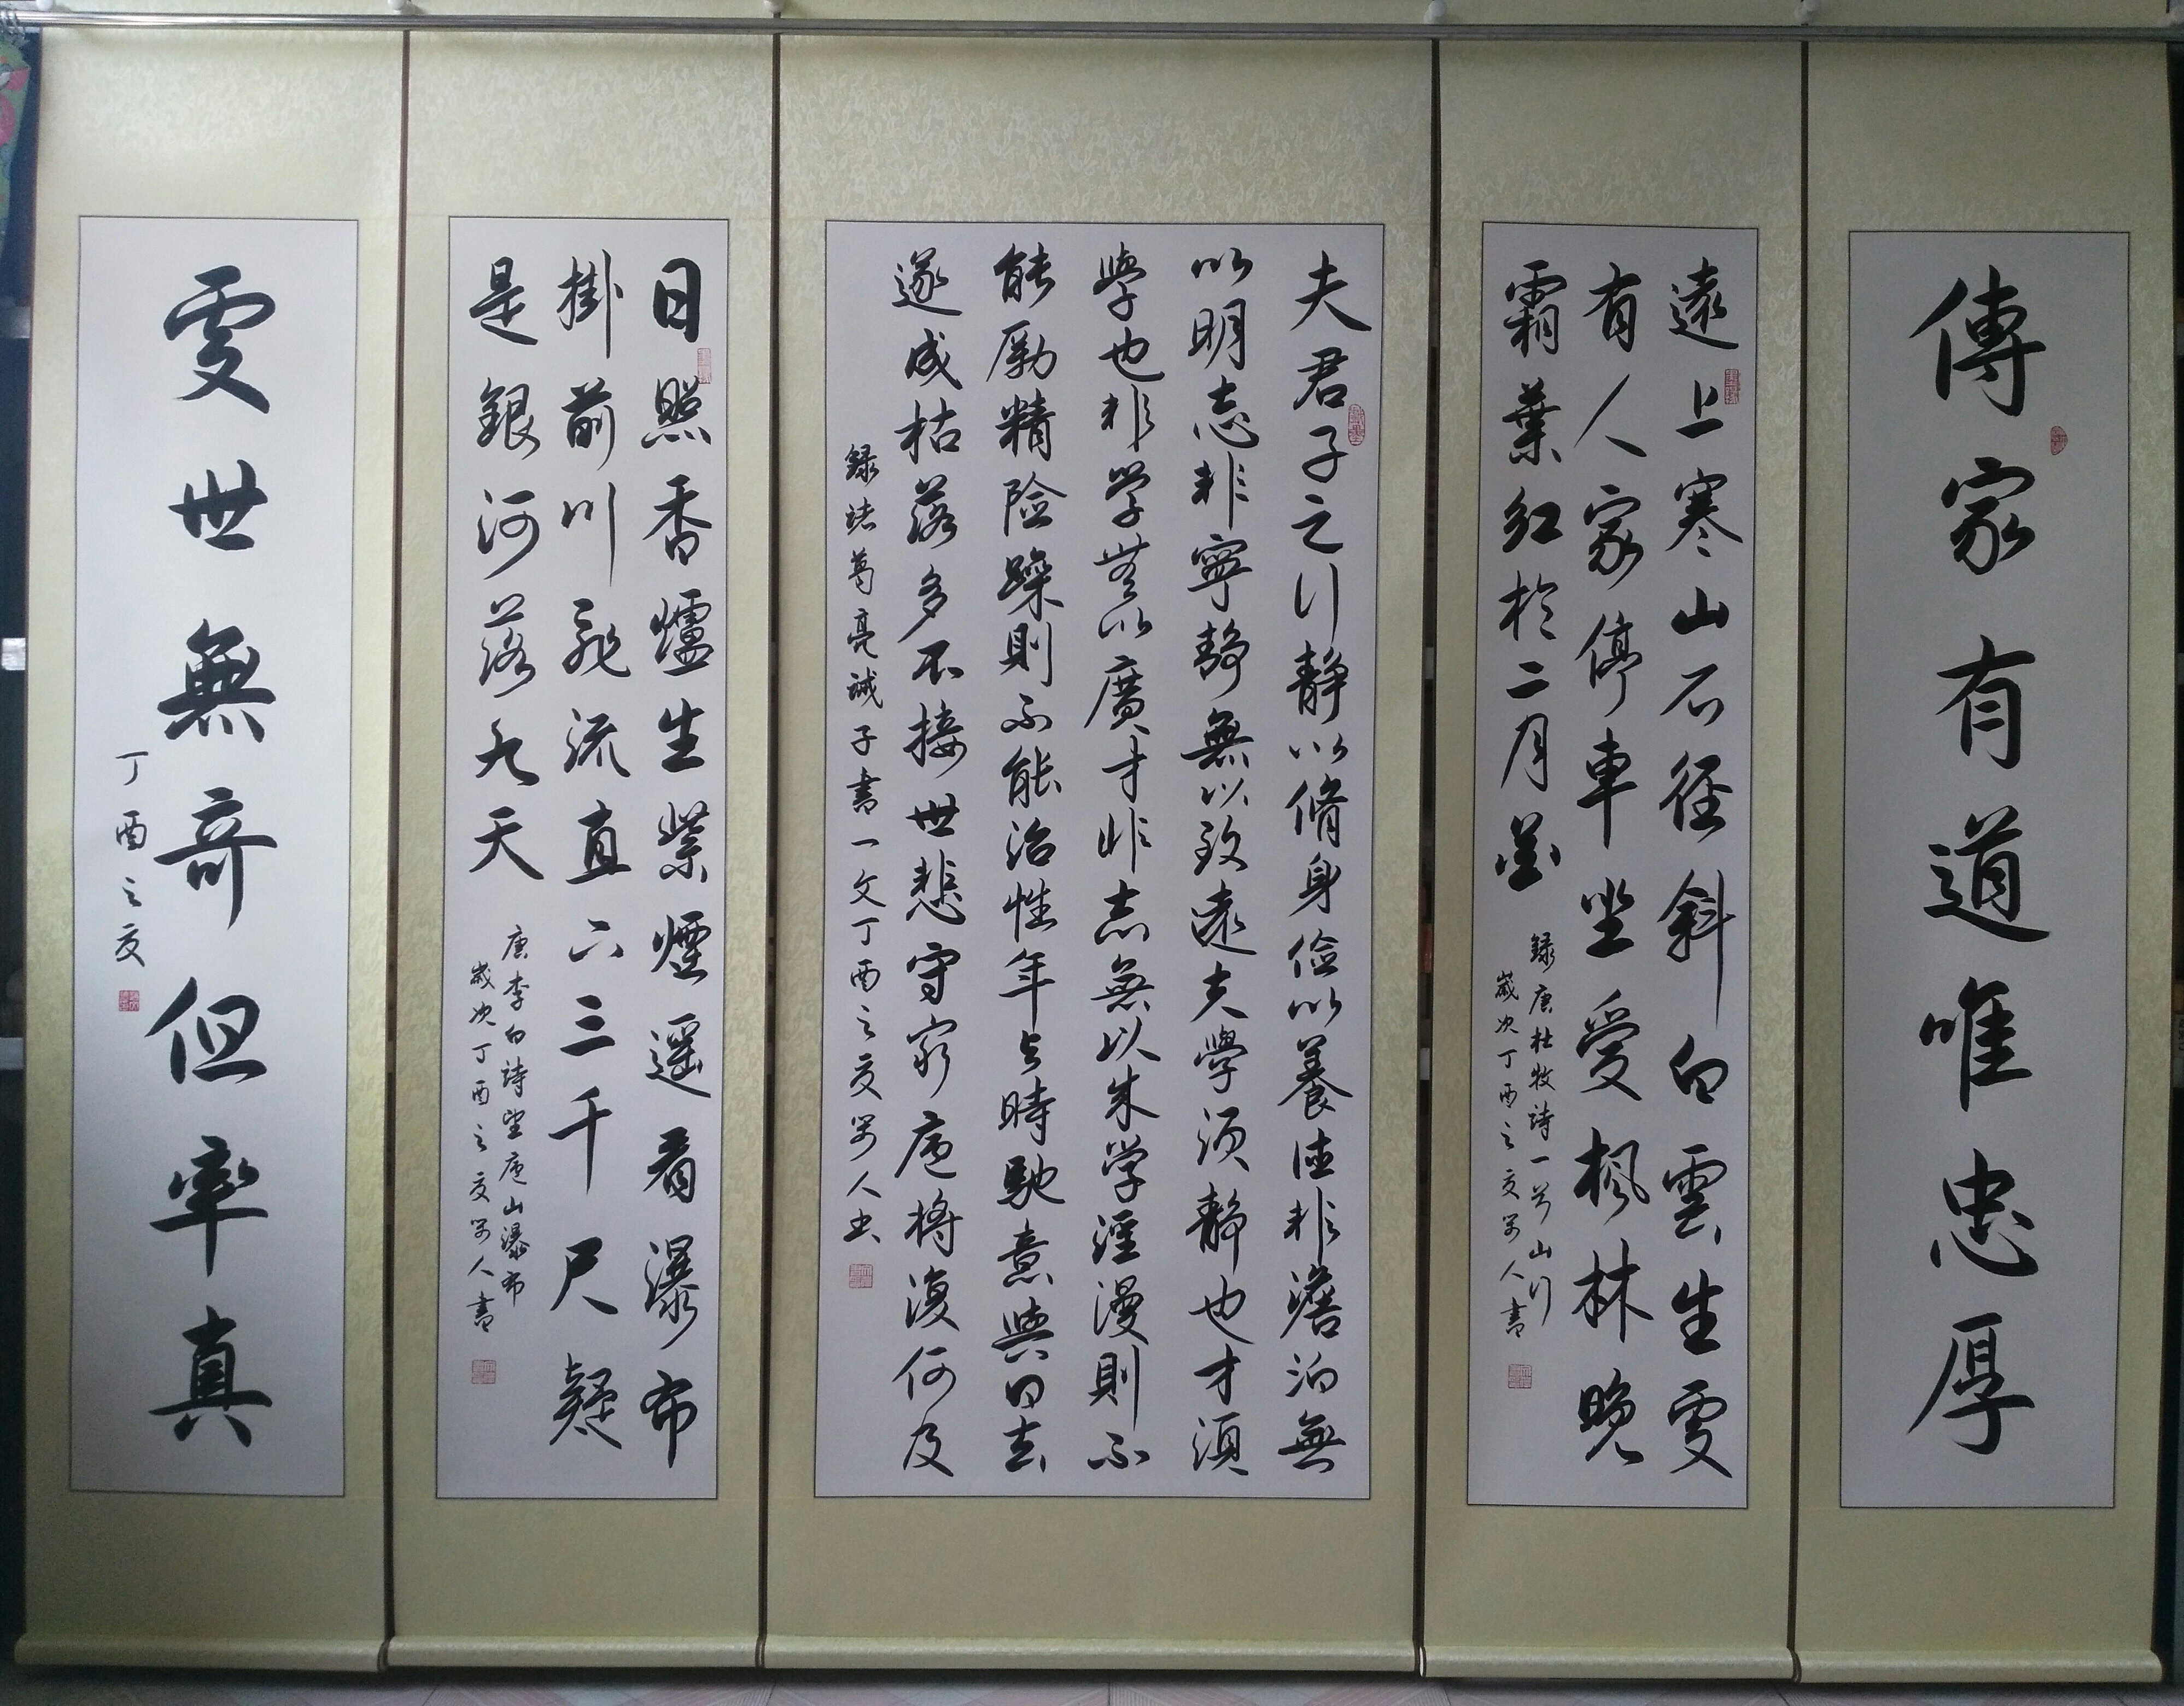 傳家有道唯忠厚
遠上寒山石徑斜白雲生處
有人家停車坐愛楓林晚
霜葉紅於二月花
録唐杜牧詩一首山行
歲次丁酉之夏 人書
夫君子之行静以脩身儉以養德非澹泊無
以明志非寧静無以致遠夫學須静也才須
學也非学無以廣才非志無以成学淫漫則不
能勵精险躁則不能治性年与時馳意與日去
遂成枯落多不接世悲守窮廬將復何及
録诸葛亮誡子書一文丁酉之夏 人书
日照香爐生紫煙遥看瀑布
掛前川飛流直下三千尺疑
是銀河落九天
唐李白詩望庐山瀑布
歲次丁酉之夏 人書
處世無奇但率真
丁酉之夏